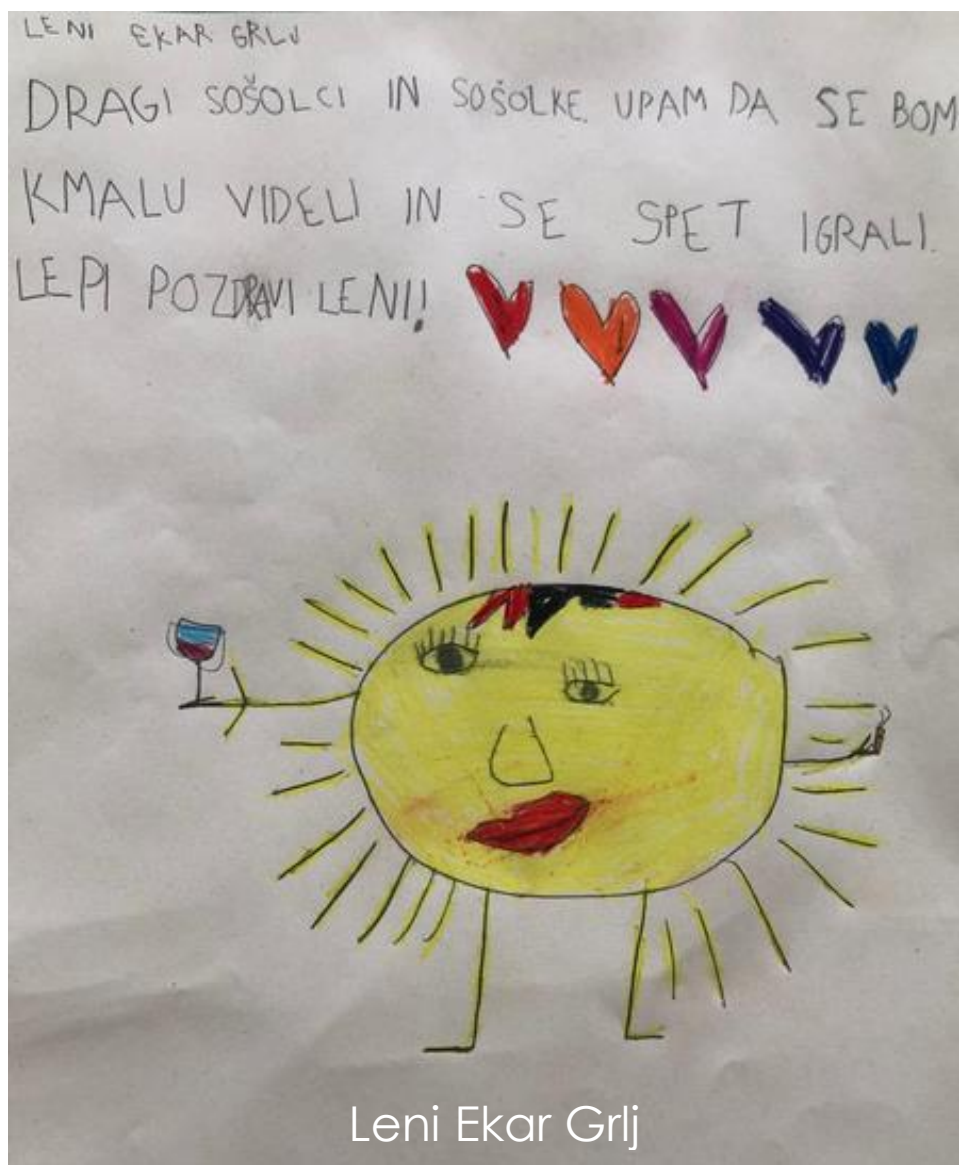 LENI EKAR GRLJ
DRAGI SOŠOLCI IN SOŠOLKE. UPAM DA SE BOM
KMALU VIDELI IN SE SPET IGRALI.
LEPI POZDRAVI LENI!
Leni Ekar Grlj